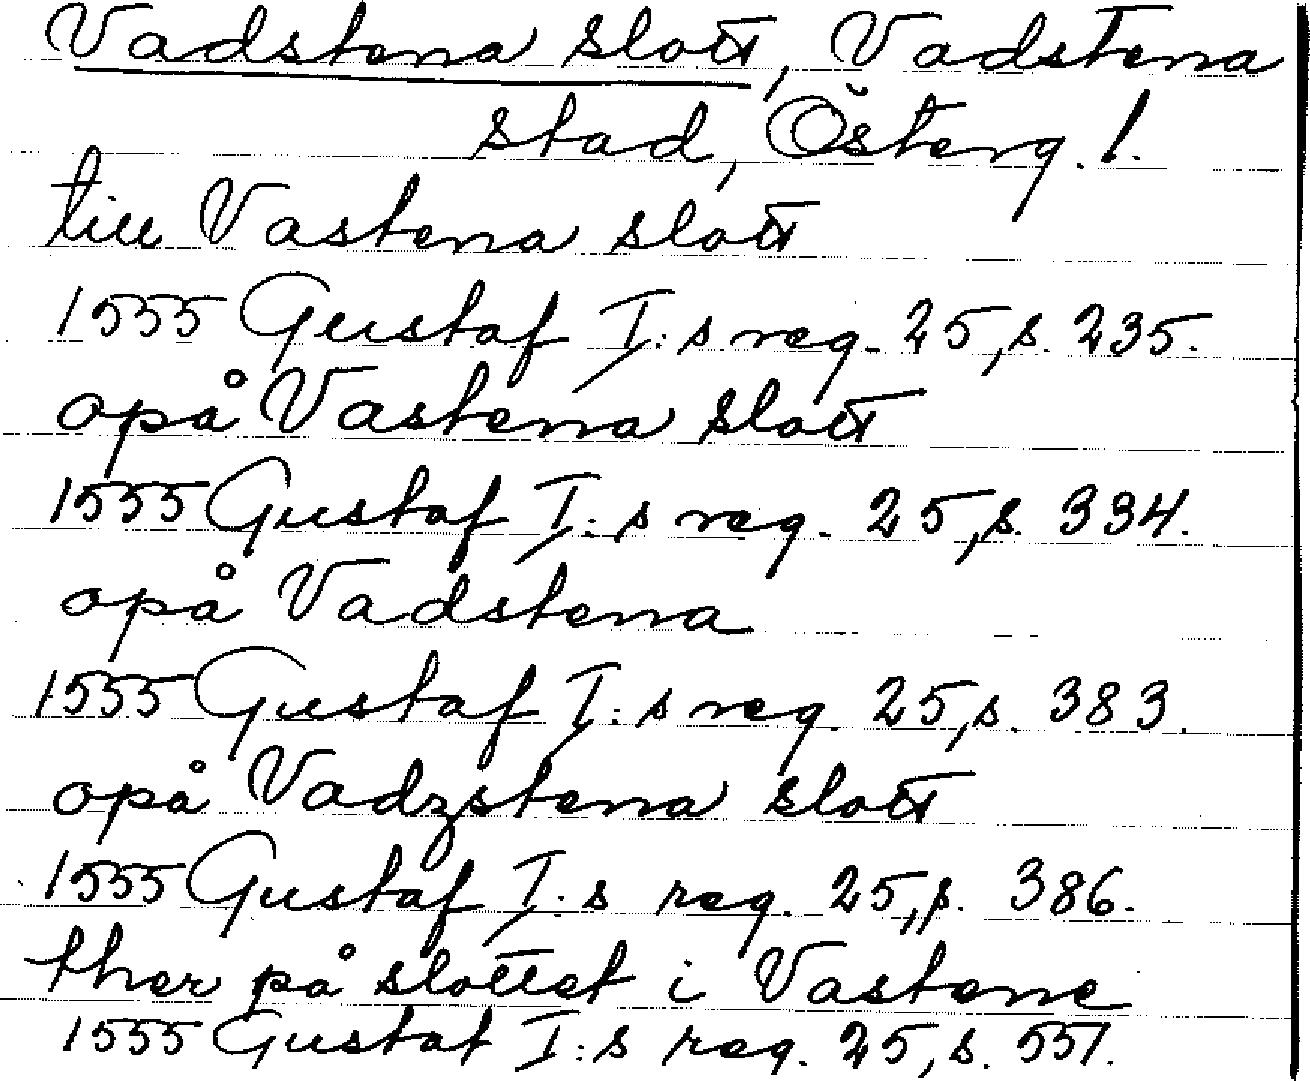 Vadstena slott, Vadstena
stad, Österg. l.
till Vastena slott
1555 Gustaf I:s reg. 25, s. 235.
opå Vastena slott
1555 Gustaf I:s reg. 25, s. 334.
opå Vadstena
1555 Gustaf I:s reg. 25, s. 383.
opå Vadzstena slott
1555 Gustaf I:s reg. 25, s. 386.
ther på slottet i Vastene
1555 Gustaf I:s reg. 25, s. 551.